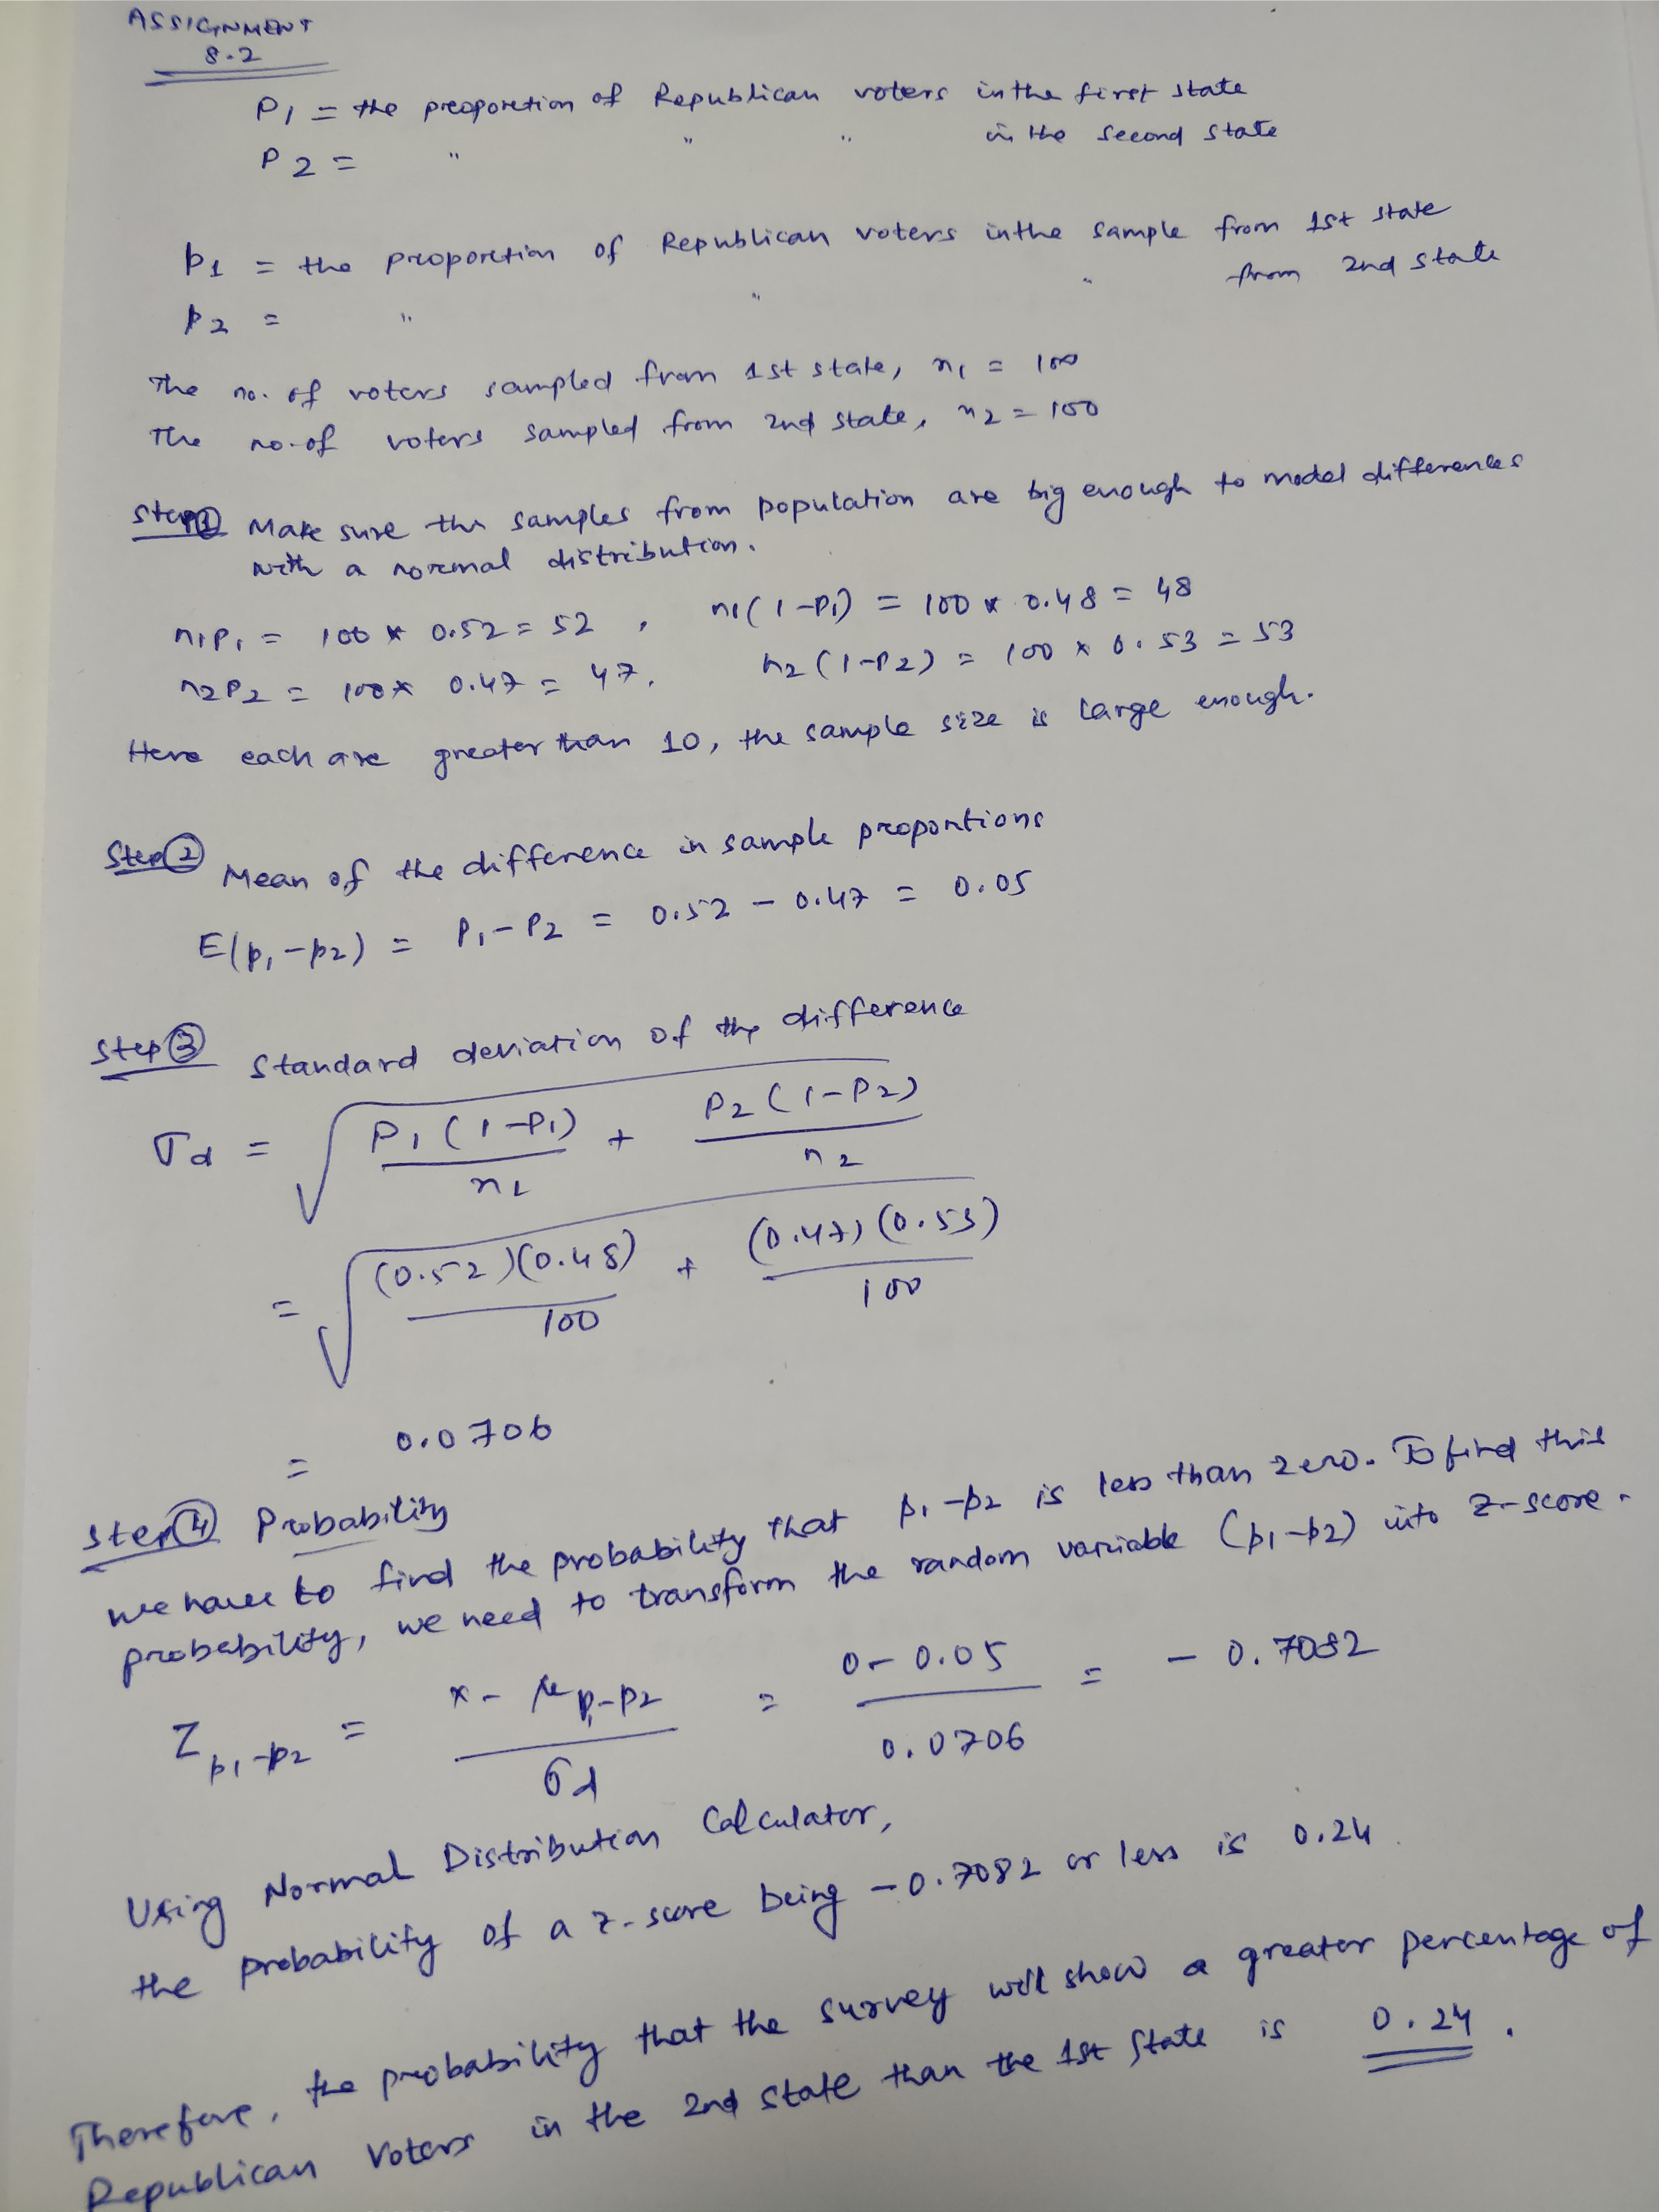 ASSIGNMENT
8.2
P1 = the proportion of Republican voters in the first state
P2 = " " " in the second state
p1 = the proportion of Republican voters in the sample from 1st state
p2 = " " " from 2nd state
The no. of voters sampled from 1st state, n1 = 100
The no. of voters sampled from 2nd state, n2 = 100
Step① Make sure the samples from population are big enough to model differences
with a normal distribution.
n1P1 = 100 * 0.52 = 52 , n1(1-P1) = 100 * 0.48 = 48
n2P2 = 100 * 0.47 = 47, n2(1-P2) = 100 * 0.53 = 53
Here each are greater than 10, the sample size is large enough.
Step② Mean of the difference in sample proportions
E(p1-p2) = P1-P2 = 0.52 - 0.47 = 0.05
Step③ Standard deviation of the difference
σd = √ P1(1-P1) / n1 + P2(1-P2) / n2
= √ (0.52)(0.48) / 100 + (0.47)(0.53) / 100
= 0.0706
Step④ Probability
we have to find the probability that p1-p2 is less than zero. To find this
probability, we need to transform the random variable (p1-p2) into z-score.
Z p1-p2 = x - μ p1-p2 / σd = 0 - 0.05 / 0.0706 = - 0.7082
Using Normal Distribution Calculator,
the probability of a z-score being -0.7082 or less is 0.24.
Therefore, the probability that the survey will show a greater percentage of
Republican Voters in the 2nd state than the 1st State is 0.24.